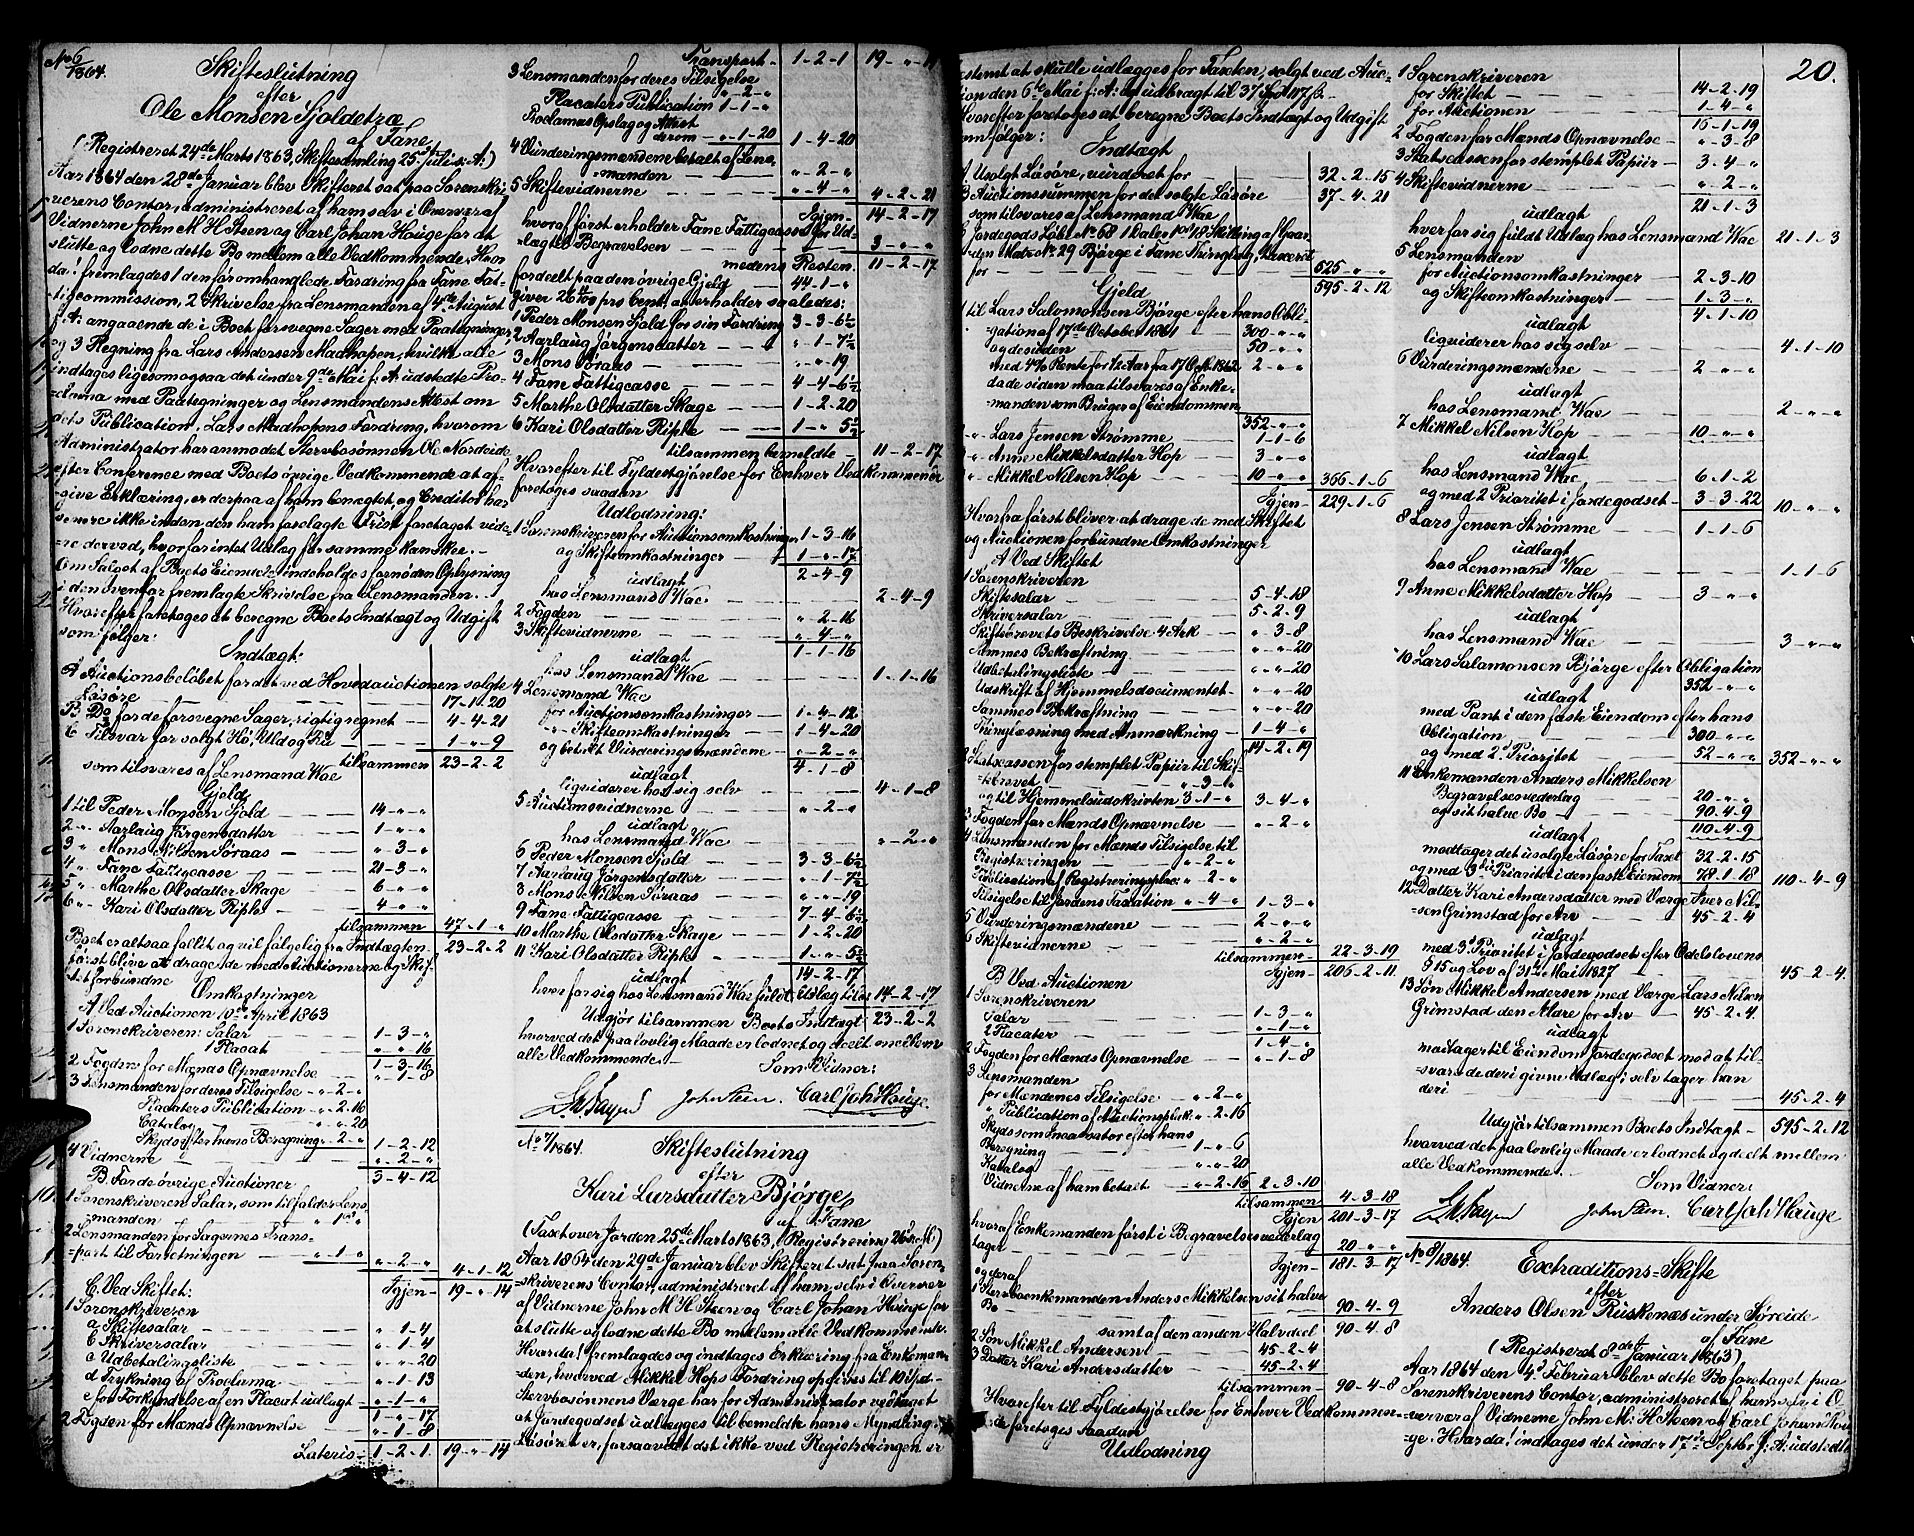 No 6/1864.
Skifteslutning
efter
Ole Monsen Sjoldetræ
af Fane
(Registreret 24de Marts 1863, Skiftesamling 25 Juli s: A:)
Aar 1864 den 28de Januar blev Skifteret sat paa Sorenskri-
verens Contor, administreret af ham selv i Overvær af
Vidnerne John M H Steen og Carl Johan Houge for at
slutte og lodne dette Bo mellem alle Vedkommende, Hvor
da! fremlagdes 1 den før omhandlede Fordring fra Fane Fat-
tigcommission, 2 Skrivelse fra Lensmanden af 4de August
f: A: angaaende de i Boet forsvegne Sager med Paategninger,
og 3 Regning fra Lars Andersen Madhopen, hvilke alle
indtages ligesom ogsaa det under 9de Mai f: A: udstedte Pro-
clama med Paategninger og Lensmandens Attest om
dets Publication. Lars Madhopens Fordring, hvorom
Administrator har anmodet Sterbosønnen Ole Nordeide
efter Conference med Boets øvrige Vedkommende at af-
give Erklæring, er derpaa af ham benegtet og Creditor har
senere ikke inden den ham forelagte Frist foretaget vide-
re derved, hvorfor intet Udlæg for samme kan skee. –
Om Salget af Boets Eiendele indeholdes fornøden Oplysning
i den ovenfor fremlagte Skrivelse fra Lensmanden. –
Hvorefter foretoges at beregne Boets Indtægt og Udgift
som følger:
Indtægt:
A Auctionsbeløbet for det ved Hovedauctionen solgte
Løsøre 17-1-20
B Do for de forsvegne Sager, rigtig regnet 4-4-21
C Tilsvar for solgt Hø, Uld og Ku 1-"-9
som tilsvares af Lensmand Wae tilsammen 23-2-2
Gjeld
1 til Peder Monsen Sjold 14-"-"
2 " Aarlaug Jørgensdatter 1-"-"
3 " Mons Nilsen Søraas "-3-"
4 " Fane Fattigcasse 21-3-"
5 " Marthe Olsdatter Skage 6-"-"
6 " Kari Olsdatter Riple 4-"-"
tilsammen 47-1-"
Boet er altsaa fallit og vil følgelig fra Indtægten 23-2-2
først blive at drage de med Auctionerne og Skif-
tet forbundne
Omkostninger
A Ved Auctionen 10de April 1863
1 Sorenskriveren: Salar 1-3-"
1 Placat "-"-16
1-3-16
2 Fogden for Mænds Opnævnelse "-1-8
3 Lensmanden for deres Tilsigelse "-2-"
Placaters Publication "-2-16
Catalog "-"-20
Skyds efter hans Beregning "-2-" 1-2-12
4 Vidnerne "-2-"
3-4-12
B. For de øvrige Auctioner
1 Sorenskriveren Salar, som tilfalder Lens-
manden
2 Lensmanden for Sagernes Trans-
port til Forretningen "-1-" "-2-"
4-1-12
C. Ved Skiftet: Igjen 19-"-14
1 Sorenskriveren
a Skiftesalar "-1-4
b Skriversalar "-1-4
c Udbetalingsliste "-"-20
d Trykning af Proclama "-1-13
e for Forkyndelse af en Placat udlagt "-1-"
1-"-17
2 Fogden for Mænds Opnævnelse "-1-8
Lateris 1-2-1 19-"-14
Transport 1-2-1 19-"-14
3 Lensmanden for deres Tilsigelse "-2-"
Placaters Publication 1-1-"
Proclamas Opslag og Attest
derom "-1-20 1-4-20
4 Vurderingsmændene betalt af Lens-
manden "-2-"
5 Skiftevidnerne "-4-" 4-2-21
Igjen 14-2-17
hvoraf først erholder Fane Fattigcasse for Ud-
lagte Begravelsen 3-"-"
medens Resten 11-2-17
fordeelt paa den øvrige Gjeld 44-1-"
giver 26 pro bent. at erholder saaledes:
1 Peder Monsen Sjold for sin Fordring 3-3-6½
2 Aarlaug Jørgensdatter "-1-7½
3 Mons Søraas "-"-19
4 Fane Fattigcasse 4-4-6½
5 Marthe Olsdatter Skage 1-2-20
6 Kari Olsdatter Riple 1-"-5½
tilsammen bemeldte 11-2-17
Hvorefter til Fyldestgjørelse for Enhver Vedkommende
foretoges saadan
Udlodning:
1 Sorenskriveren for Auctionsomkostninger 1-3-16
og Skifteomkostninger 1-"-17
2-4-9
udlagt
hos Lensmand Wae 2-4-9
2 Fogden "-2-16
3 Skiftevidnerne "-4-"
1-1-16
udlagt
hos Lensmand Wae 1-1-16
4 Lensmand Wae
for Auctionsomkostninger 1-4-12
" Skifteomkostninger 1-4-20
og betalt Vurderingsmændene "-2-"
4-1-8
udlagt
liqviderer hos sig selv 4-1-8
5 Auctionsvidnerne "-2-"
udlagt
hos Lensmand Wae "-2-"
6 Peder Monsen Sjold 3-3-6½
7 Aarlaug Jørgensdatter "-1-7½
8 Mons Nilsen Søraas "-"-19
9 Fane Fattigcasse 7-4-6½
10 Marthe Olsdatter Skage 1-2-20
11 Kari Olsdatter Riple 1-"-5½
udlagt 14-2-17
hver for sig hos Lensmand Wae fuldt Udlæg tilos 14-2-17
Udgjør tilsammen Boets Indtægt 23-2-2
hvorved det paa lovlig Maade er lodnet og deelt mellem
alle Vedkommende. –
Som Vidner:
John Steen. Carl Joh Houge.
No 7/1864.
Skifteslutning
efter
Kari Larsdatter Bjørge
af Fane
(Taxt over Jorden 25de Marts 1863, Registrering 26 s. M.)
Aar 1864 den 29de Januar blev Skifteret sat paa Soren-
skriverens Contor, administreret af ham selv i Overvær
af Vidnerne John M. H Steen og Carl Johan Houge for
at slutte og lodne dette Bo mellem alle Vedkommende.
Hvorda! fremlagdes og indtages Erklæring fra Enkeman-
den, hvorved Mikkel Hops Fordring opføres til 10 Spd –
Sterbosønnens Værge har for Administrator vedtaget
at Jordegodset udlægges til bemeldte hans Myndling.
Løsøret er, forsaavidt det ikke ved Registreringen er
bestemt at skulle udlægges for Taxten, solgt ved Auc-
tion den 6te Mai f: A: og udbragt til 37 Spd 117 ß.
Hvorefter foretoges at beregne Boets Indtægt og Udgift
som følger:
Indtægt
1 Usolgt Løsøre, vurderet for 32-2-15
2 Auctionssummen for det solgte Løsøre 37-4-21
som tilsvares af Lensmand Wae
3 Jordegods Løbe No 68 1 Daler 1 ort 18 Skilling af Gaar-
den Matr: No 29 Bjørge i Fane Thinglag, taxeret
for 525-"-"
595-2-12
Gjeld
1 til Lars Salomonsen Bjørge efter hans Obli-
gation af 17de October 1861 300-"-"
og desuden 50-"-"
med 4% Rente for 12 Aar fra 17 Oct. 1862 2-"-"
da de siden maa tilsvares af Enke-
manden som Bruger af Eiendommen
352-"-"
" Lars Jensen Strømme 1-1-6
" Anne Mikkelsdatter Hop 3-"-"
" Mikkel Nilsen Hop 10-"-" 366-1-6
Igjen 229-1-6
Hvorfra først bliver at drage de med Skiftet
og Auctionen forbundne Omkostninger
A Ved Skiftet
1 Sorenskriveren
Skiftesalar 5-4-18
Skriversalar 5-2-9
Skiftebrevets Beskrivelse 4 Ark "-3-8
Sammes Bekræftning "-"-20
Udbetalingsliste "-"-20
Udskrift af Hjemmelsdocumentet "-"-20
Sammes Bekræftning "-"-20
Thinglæsning med Anmærkning 1-4-"
14-2-19
2 Statscassen for stemplet Papiir til Skif-
tebrevet "-3-"
og til Hjemmelsudskriften 3-1-" 3-4-"
3 Fogden for Mænds Opnævnelse "-2-"
4 Lensmanden for Mænds Tilsigelse til
Registreringen "-2-"
Publication af Registreringsplac: "-2-"
Tilsigelse til Jordens Taxation "-4-" 1-3-"
5 Vurderingsmændene 2-"-"
6 Skiftevidnerne "-2-"
tilsammen 22-3-19
Igjen 206-2-11
B Ved Auctionen
1 Sorenskriveren
Salar 1-3-"
2 Placater "-1-"
1-4-"
2 Fogden for Mænds Opnævnelse "-1-8
3 Lensmanden
for Mændenes Tilsigelse "-2-"
" Publication af Auctionsplak: "-2-16
Skyds som Incassator efter hans
Beregning 1-"-6
Katalog "-"-20
Vidnerne af ham betalt "-2-16 2-3-10
tilsammen 4-3-18
Igjen 201-3-17
hvoraf Enkemanden først i Begravelsesvederlag
tager 20-"-"
Igjen 181-3-17
og deraf
1 Sterboenkemanden Anders Mikkelsen sit halve
Bo 90-4-9
samt af den anden Halvdeel 90-4-8
2 Søn Mikkel Andersen 45-2-4
3 Datter Kari Andersdatter 45-2-4
tilsammen 90-4-8
Hvorefter til Fyldestgjørelse for Enhver Vedkommen-
de foretoges saadan
Udlodning
20.
1 Sorenskriveren
for Skiftet 14-2-19
for Auctionen 1-4-"
16-1-19
2 Fogden for Mænds Opnævnelse "-3-8
3 Statscassen for stemplet Papiir 3-4-"
4 Skiftevidnerne "-2-"
21-1-3
udlagt
hver for sig fuldt Udlæg hos Lensmand Wae 21-1-3
5 Lensmanden
for Auctionsomkostninger 2-3-10
og Skifteomkostninger 1-3-"
4-1-10
udlagt
liqviderer hos sig selv 4-1-10
6 Vurderingsmændene 2-"-"
udlagt
hos Lensmand Wae 2-"-"
7 Mikkel Nilsen Hop 10-"-"
udlagt
hos Lensmand Wae 6-1-2
og med 2 Prioritet i Jordegodset 3-3-22 10-"-"
8 Lars Jensen Strømme 1-1-6
udlagt
hos Lensmand Wae 1-1-6
9 Anne Mikkelsdatter Hop 3-"-"
udlagt
hos Lensmand Wae 3-"-"
10 Lars Salamonsen Bjørge efter Obligation
352-"-"
udlagt
med Pant i den faste Eiendom efter hans
Obligation 300-"-"
og med 2d Prioritet 52-"-" 352-"-"
11 Enkemanden Anders Mikkelsen
Begravelsesvederlag 20-"-"
og sit halve Bo 90-4-9
udlagt 110-4-9
modtager det usolgte Løsøre for Taxt 32-2-15
og med 3die Prioritet i den faste Eiendom 78-1-18 110-4-9
12 Datter Kari Andersdatter med Værge Iver Nil-
sen Grimstad for Arv 45-2-4
udlagt
med 3d Prioritet i Jordegodset efter Odelslovens
§ 15 og Lov af 31te Mai 1827 45-2-4.
13 Søn Mikkel Andersen med Værge Lars Nilsen
Grimstad den Ældre for Arv 45-2-4.
udlagt
modtager til Eiendom Jordegodset mod at til-
svare de deri givne Udlæg; selv tager han
deri 45-2-4
Udgjør tilsammen Boets Indtægt 595-2-12
hvorved det paa lovlig Maade er lodnet og deelt mellem
alle Vedkommende. –
Som Vidner:
John Steen. Carl Joh Houge
No 8/1864.
Extraditions-Skifte
efter
Anders Olsen Ruskenæs under Søreide
af Fane
(Registreret 8de Januar 1863)
Aar 1864 den 4d Februar blev dette Bo foretaget paa
Sorenskriverens Contor, administreret af ham selv i O-
vervær af Vidnerne John M: H Steen og Carl Johan Hou-
ge. Hvorda! indtages det under 17de Septbr f: A: udstedte